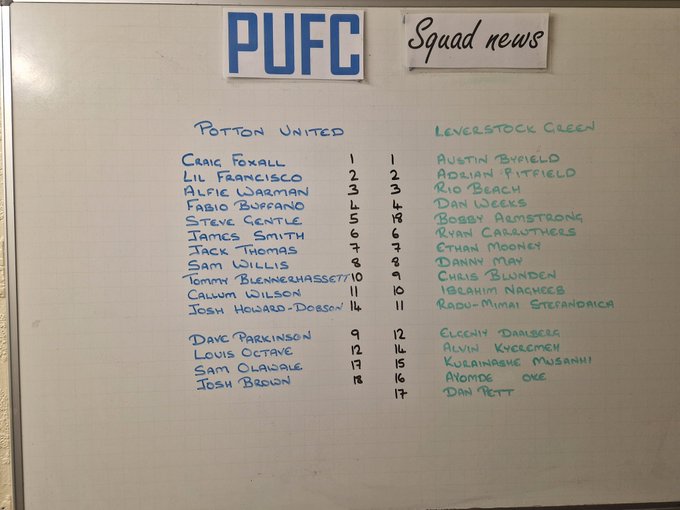 PUFC Squad news
POTTON UNITED LEVERSTOCK GREEN
CRAIG FOXALL 1 1 AUSTIN BYFIELD
LIL FRANCISCO 2 2 ADRIAN PITFIELD
ALFIE WARMAN 3 3 RIO BEACH
FABIO BUFFANO 4 4 DAN WEEKS
STEVE GENTLE 5 18 BOBBY ARMSTRONG
JAMES SMITH 6 6 RYAN CARRUTHERS
JACK THOMAS 7 7 ETHAN MOONEY
SAM WILLIS 8 8 DANNY MAY
TOMMY BLENNERHASSETT 10 9 CHRIS BLUNDEN
CALLUM WILSON 11 10 IBRAHIM NAGHEEB
JOSH HOWARD-DOBSON 14 11 RADU-MIMAI STEFANDAICA
DAVE PARKINSON 9 12 ELGENIY DAALBERG
LOUIS OCTAVE 12 14 ALVIN KYEREMEH
SAM OLAWALE 17 15 KURAINASHE MUSANHI
JOSH BROWN 18 16 AYOMDE OKE
17 DAN PETT